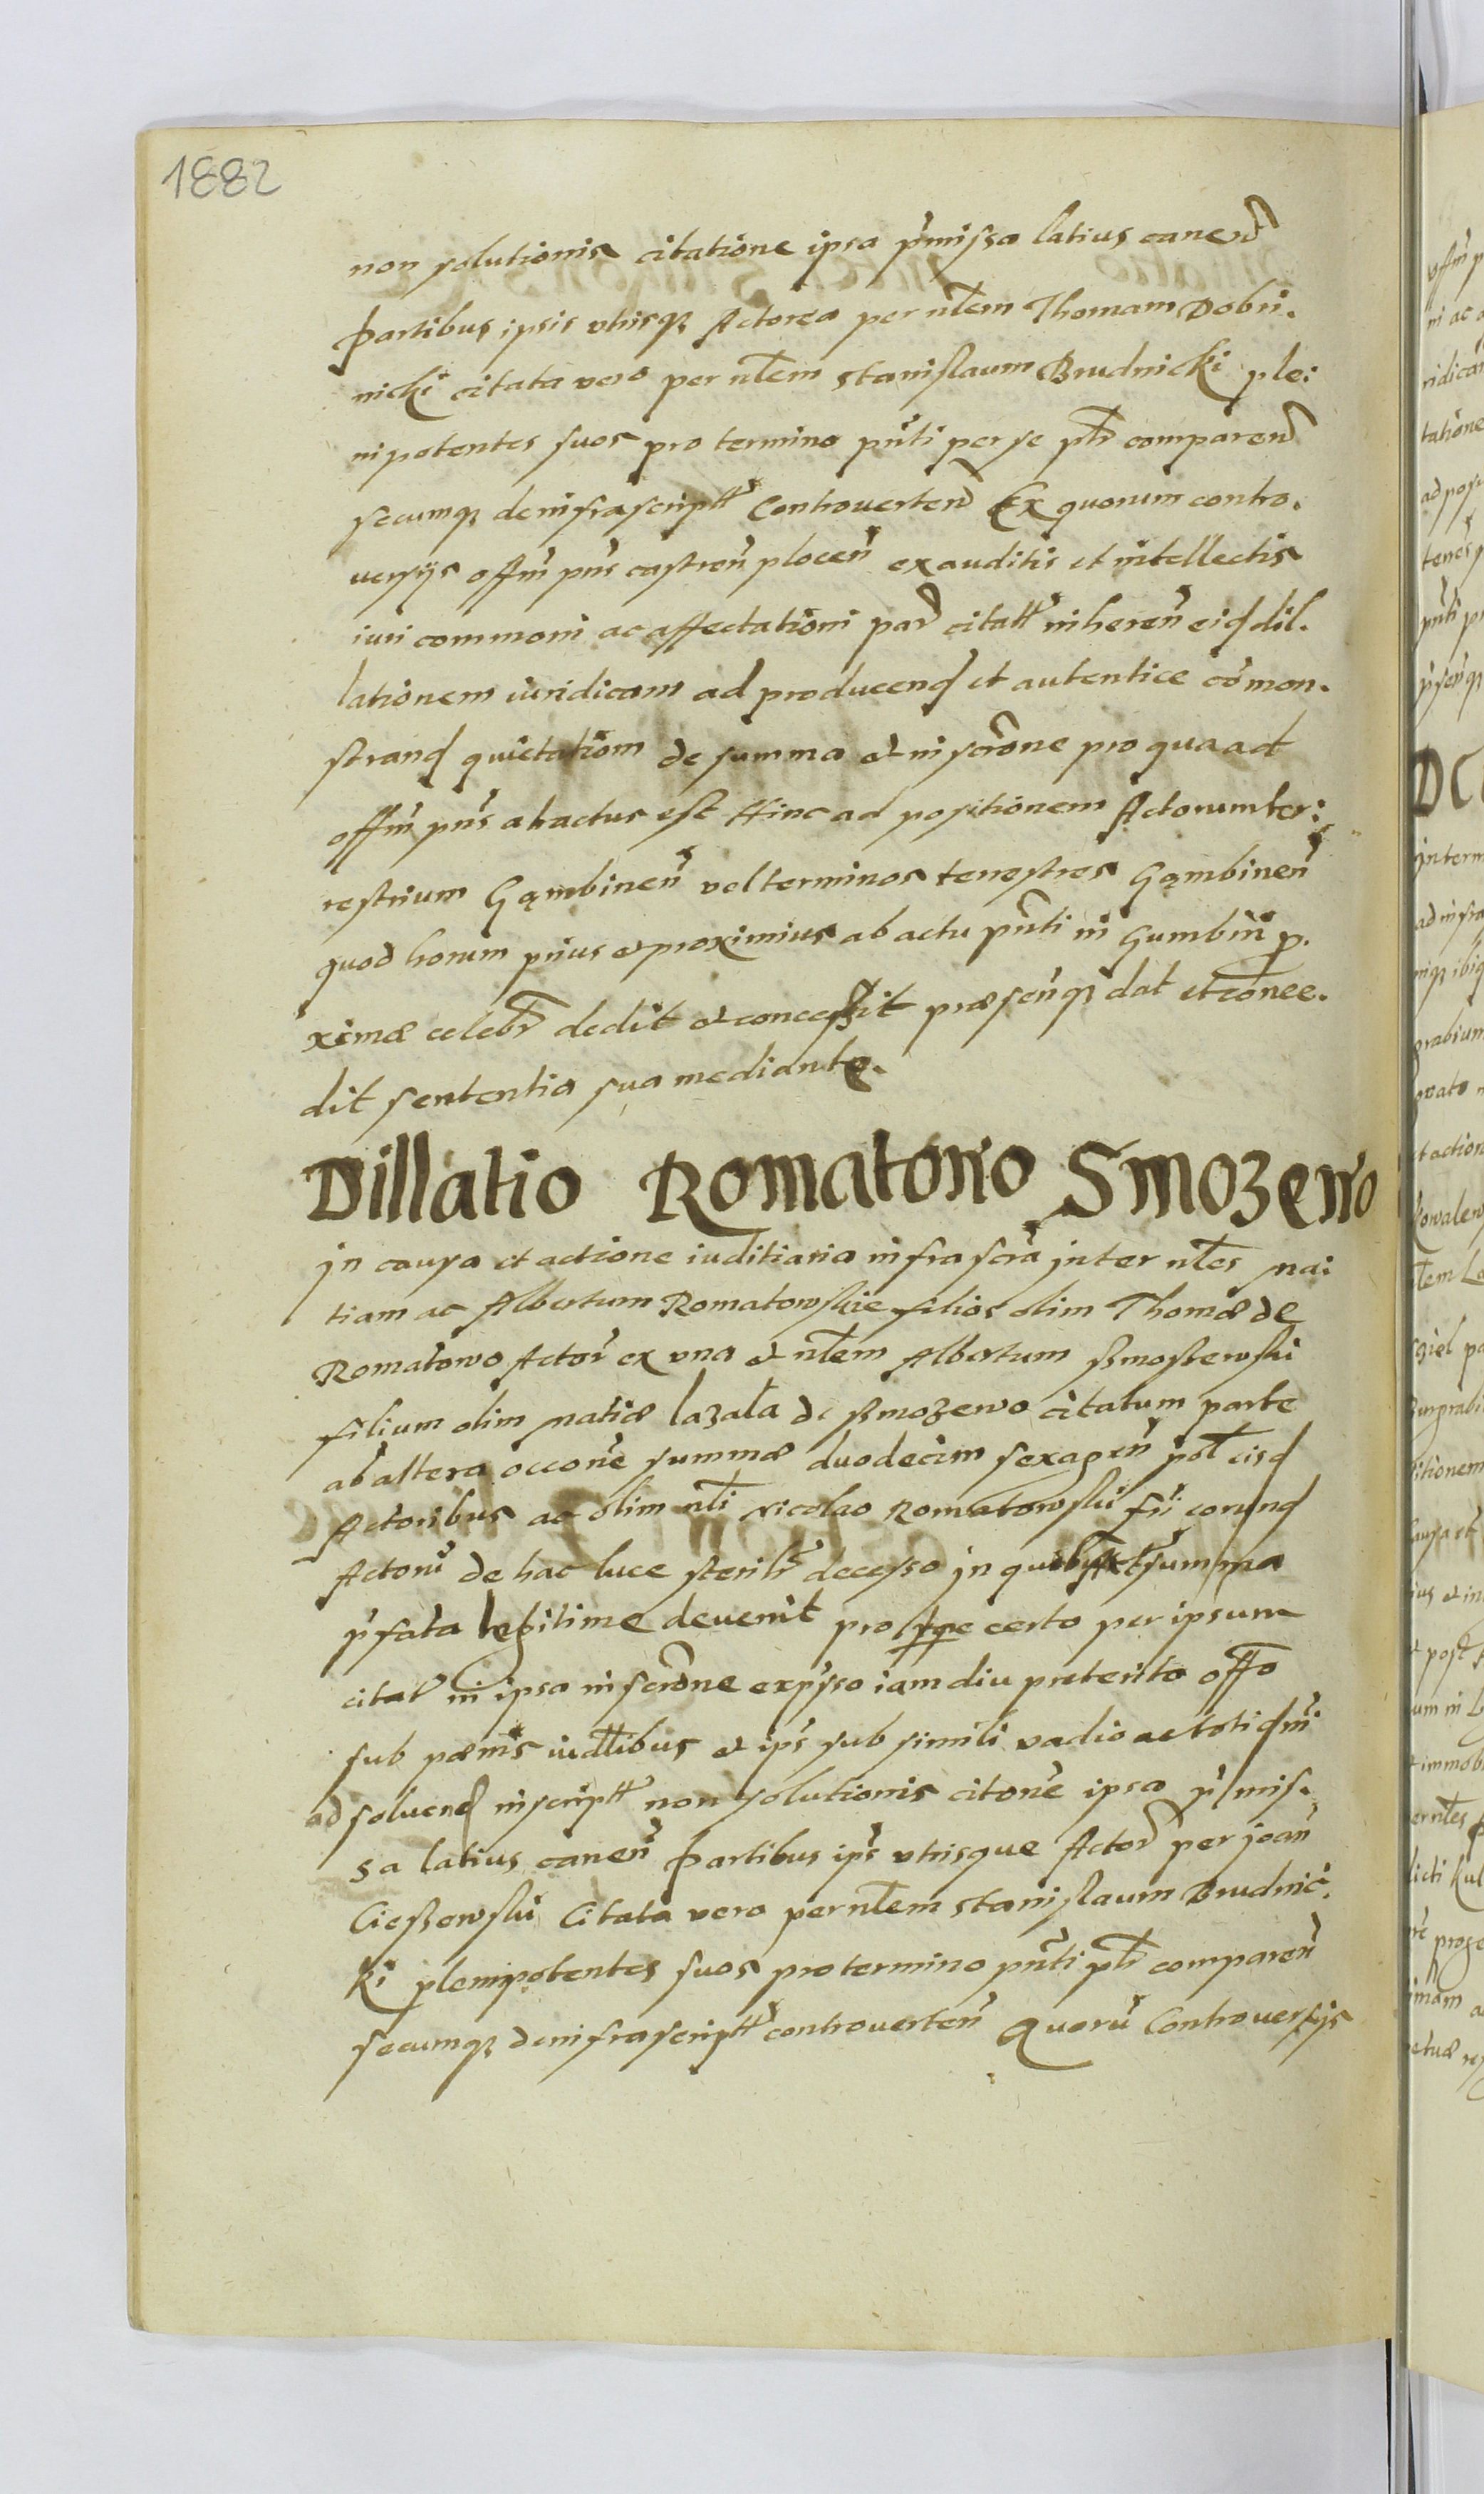 1882
non solutionis citatione ipsa p̃missa latius canen̄
Partibus ipsis vtrisqȝ Actorea per nl̃em Thomam Dobri.
nicki citata vero per nl̃em Stanislaum Brudnicki ple:
nipotentes suos pro termino pñti per se pl̃r comparen̄
secumqȝ de infrascriptt Controverten̄ Ex quorum contro.
uersijs offm̃ pñs castren̄ plocen̄ exauditis et intellectis
iuri commoni ac affectationi par̄ citatt inheren̄ eid dil.
lationem iuridicam ad producend et autentice cõmon.
strand quietatiom de summa et inscrõne pro qua ad
offm̃ pñs attractus est Hinc ad positionem Actorum ter:
restrium Gąmbinen̄ vel terminos terrestres Gąmbinen̄
quod horum prius et proximius ab actu pñti in Gumbiñ p.
ximæ celebr̃ dedit et concessit præsenqȝ dat et conce.
dit sententia sua mediante.
Dillatio Romatowo Smozewo
Jn causa et actione iuditiaria infrascr̃a inter nl̃es Mat:
tiam ac Albertum Romatowskie filios olim Thomæ de
Romatowo Actor̃ ex vna et nl̃em Albertum Smoszewski
filium olim Matiæ lazata de Smozewo citatum parte
ab altera occone summæ duodecim sexagen̄ pol̃ eisd
Actoribus ac olim nl̃i Nicolao Romatowski frĩ eorund
Actorũ de hac luce sterilr̃ decesso in summa
p̃fata legitime devenit pro tpe certo per ipsum
citat̃ in ipsa inscrõne expsso iam diu preterito offo
sub pæmis iudl̃ibus et ips̃ sub simili vadio ac totidmĩ
ad soluend inscriptt non solutionis citone ipsa p̃ mis.
sa latius canen̄ Partibus ips̃ vtrisque Actor̃ per joan̄
Cieszewski Citata vero per nl̃em Stanislaum Brudnic.
ki plenipotentes suos pro termino pñti pl̃r comparen̄
secumqȝ de infrascriptt controverten̄ Quorũ Controversijs